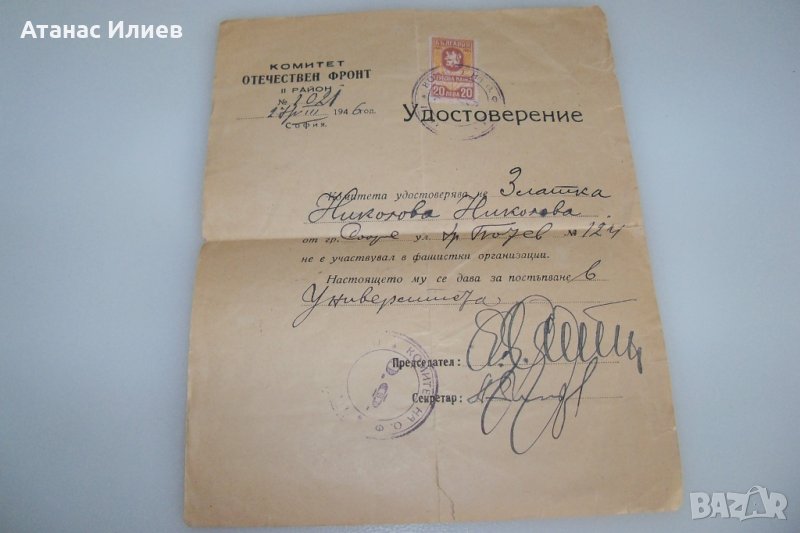 Атанас Илиев
КОМИТЕТ
ОТЕЧЕСТВЕН ФРОНТ
II РАЙОН
№ 1021
1946 год.
София.
БЪЛГАРИЯ
20 ЛЕВА 20
Удостоверение
Комитета удостоверява че Златка
Николова Николова
от гр. София ул. № 124
не е участвувал в фашистки организации.
Настоящето му се дава за постъпване в
Университета
Председател:
Секретар:
КОМИТЕТ НА О. Ф.
BAZAR